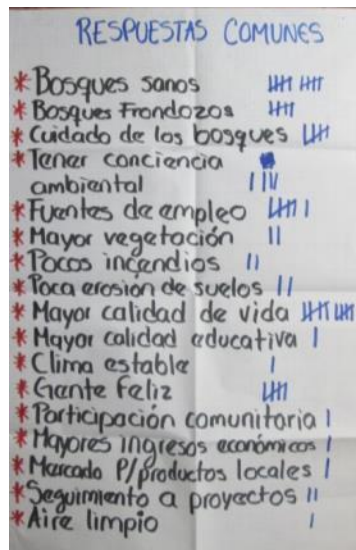 RESPUESTAS COMUNES
* Bosques sanos
* Bosques Frondozos
* Cuidado de los bosques
* Tener conciencia
ambiental
* Fuentes de empleo
* Mayor vegetación
* Pocos incendios
* Poca erosión de suelos
* Mayor calidad de vida
* Mayor calidad educativa
* Clima estable
* Gente Feliz
* Participación comunitaria
* Mayores ingresos económicos
* Mercado P/productos locales
* Seguimiento a proyectos
* Aire limpio